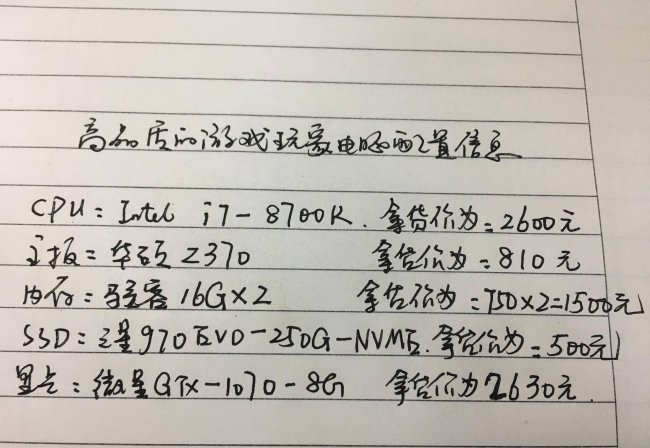 高品质的游戏玩家电脑配置信息
CPU: Intel i7-8700K. 拿货价为:2600元
主板: 华硕Z370 拿货价为:810元
内存: 骇客16G×2 拿货价为:750×2=1500元
SSD: 三星970EVO-250G-NVME. 拿货价为:500元
显卡: 微星GTX-1070-8G 拿货价为2630元.